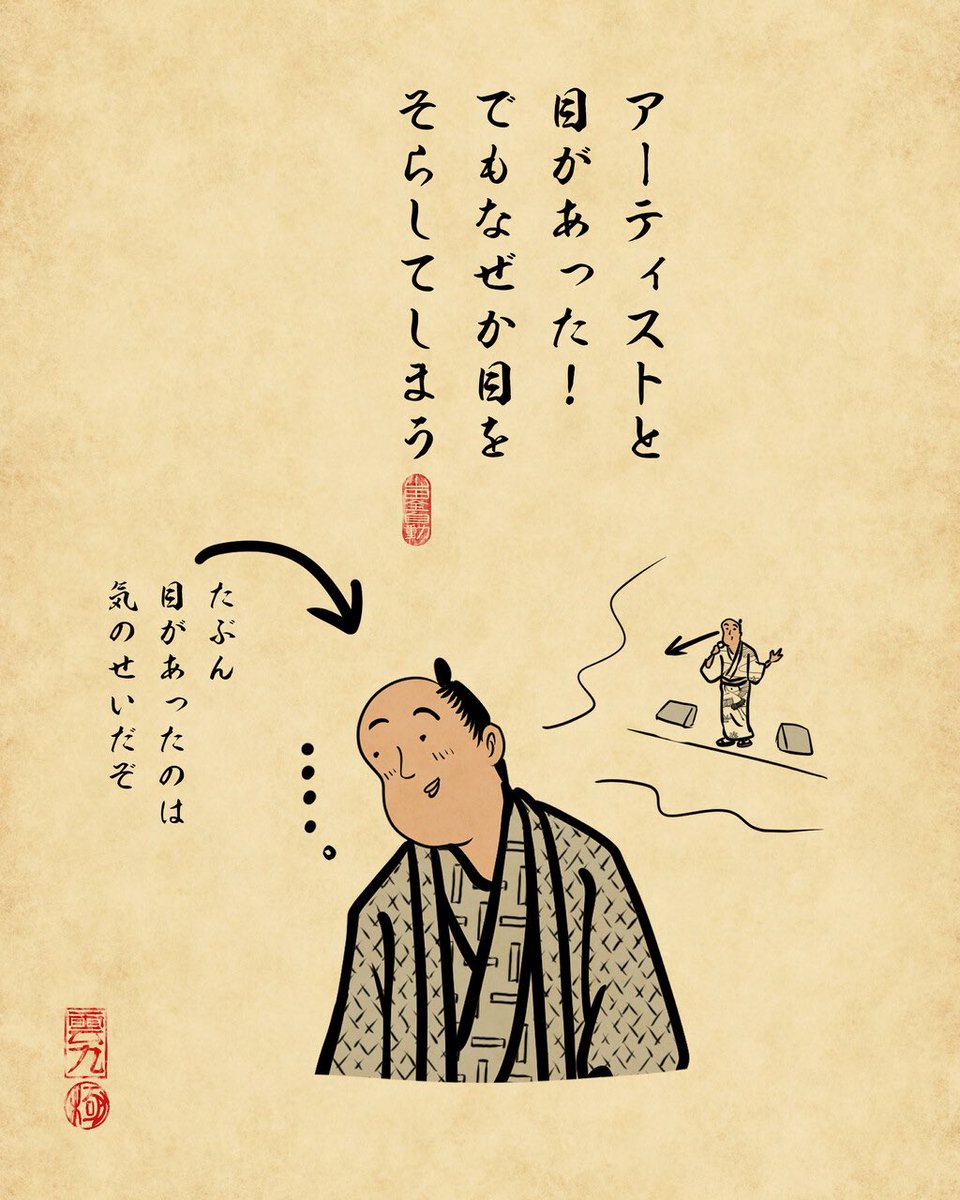 アーティストと
目があった！
でもなぜか目を
そらしてしまう
たぶん
目があったのは
気のせいだぞ